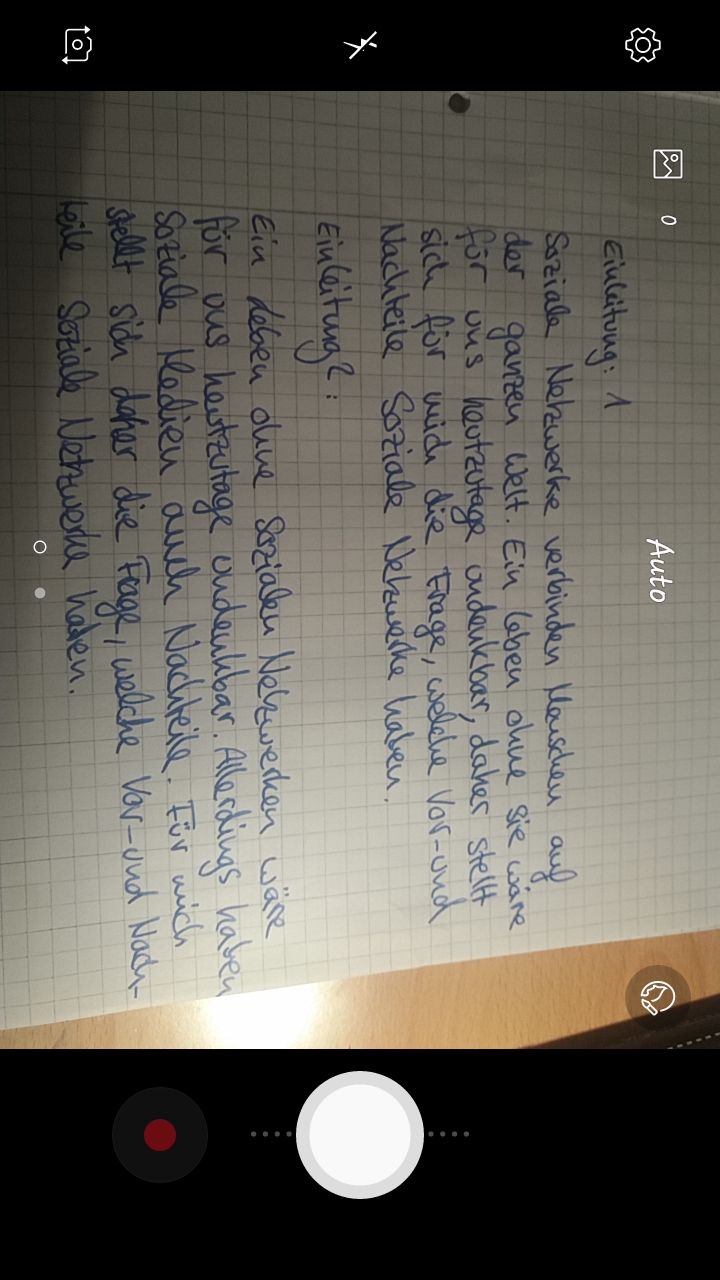 Einleitung: 1
Soziale Netzwerke verbinden Menschen auf
der ganzen Welt. Ein Leben ohne sie wäre
für uns heutzutage undenkbar, daher stellt
sich für mich die Frage, welche Vor-und
Nachteile Soziale Netzwerke haben.
Einleitung2:
Ein Leben ohne Sozialen Netzwerken wäre
für uns heutzutage undenkbar. Allerdings haben
Soziale Medien auch Nachteile. Für mich
stellt sich daher die Frage, welche Vor-und Nach-
teile Soziale Netzwerke haben.
0
Auto